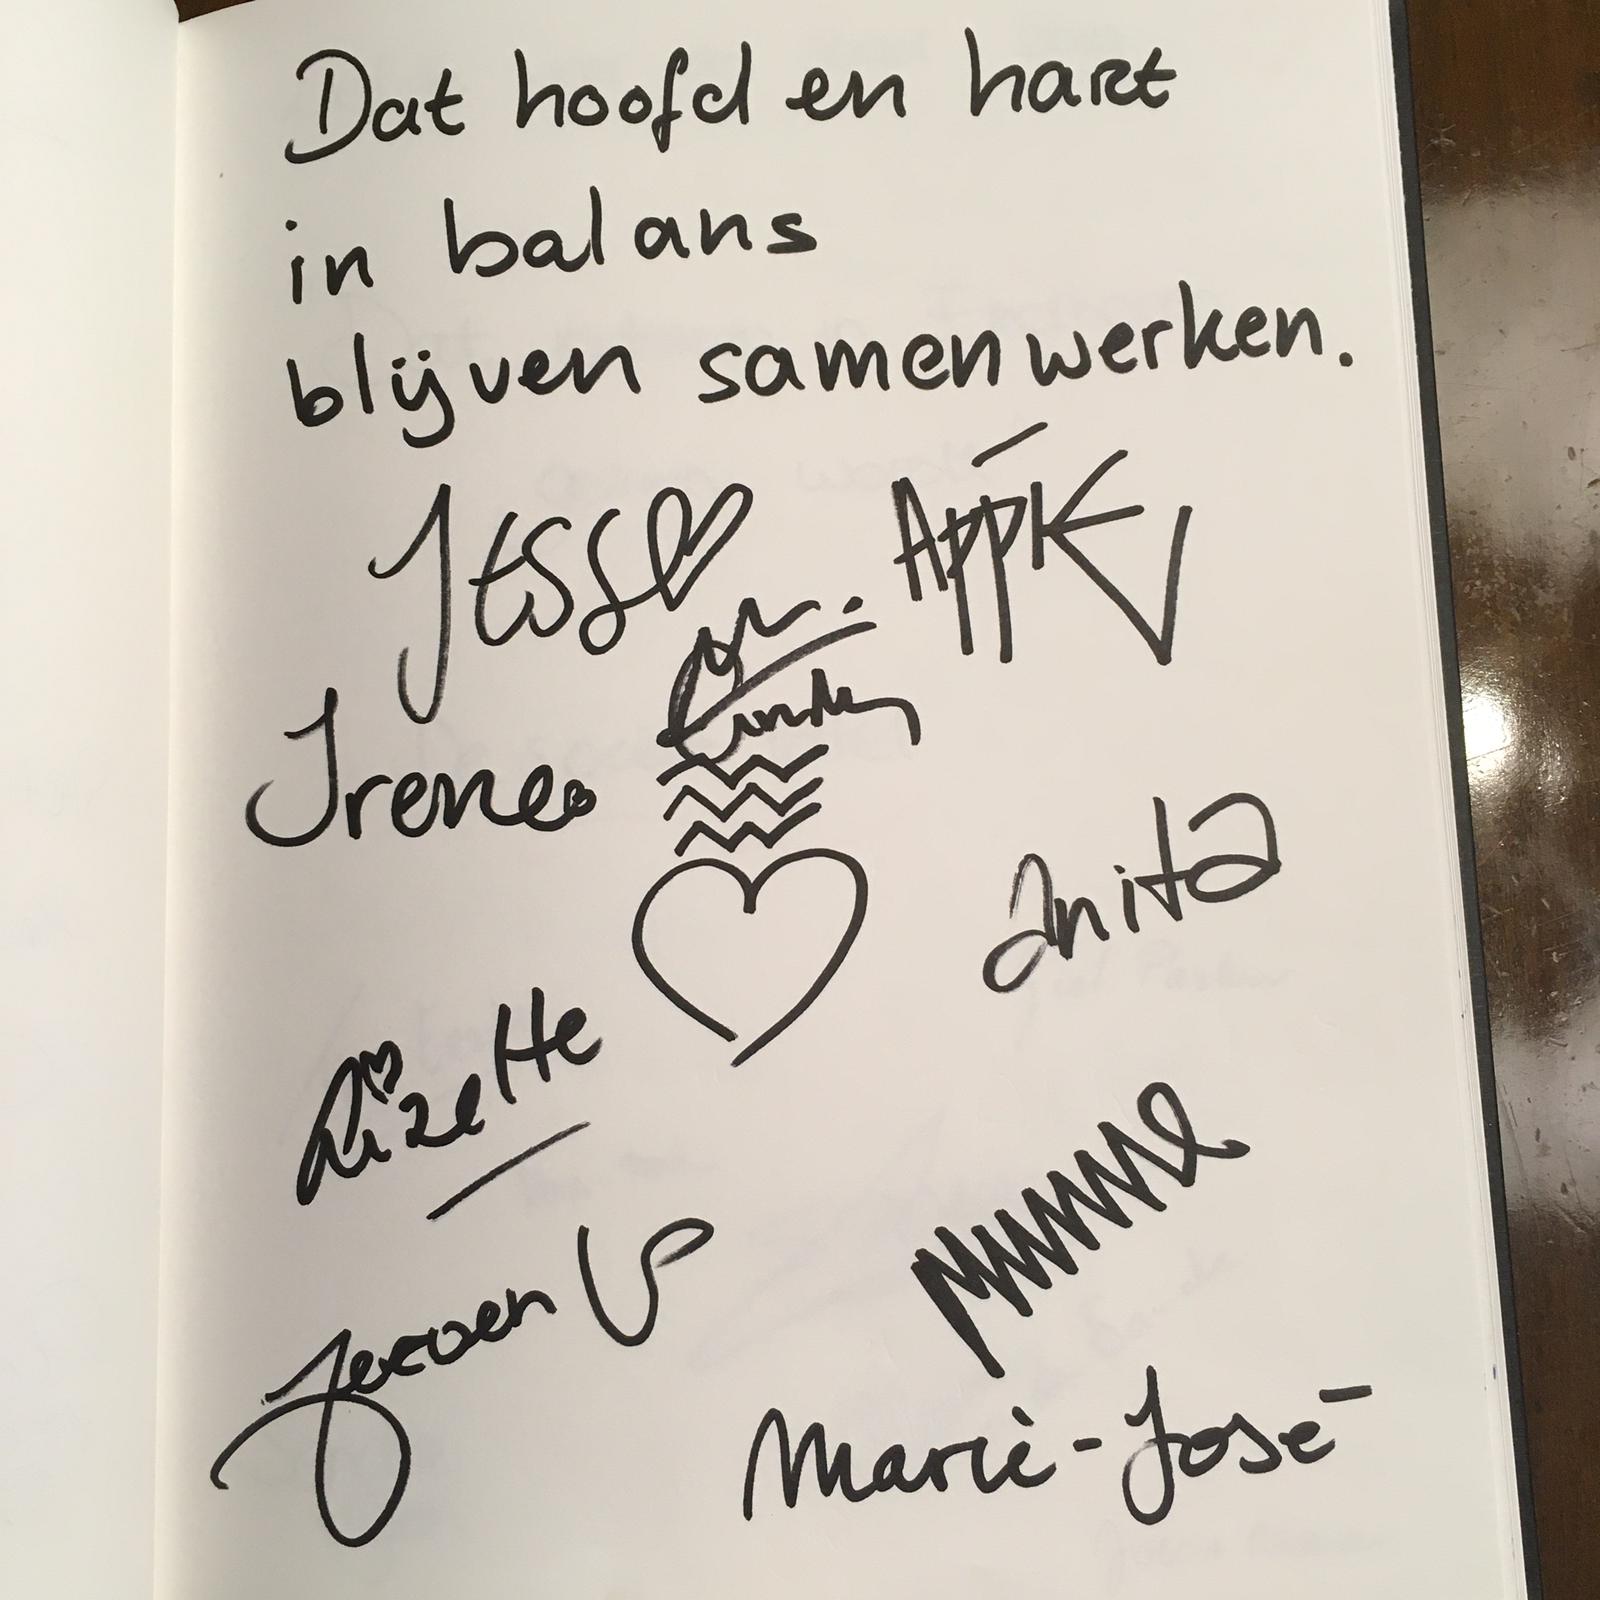 Dat hoofd en hart
in balans
blijven samenwerken.
Jess
Appie
Irene
Anita
Lizette
Jeroen
Marie-José